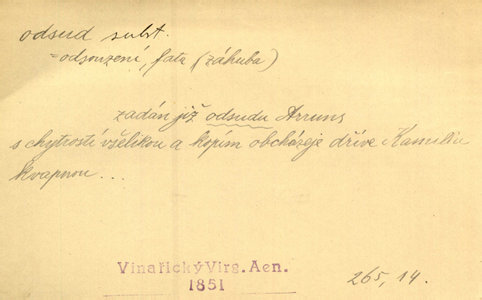 odsud subst.
= odsouzení, fata (záhuba)
zadán již odsudu Arruns
s chytrostí všelikou a kopím obcházeje dříve Kamillu
kvapnou...
Vinařický Virg. Aen.
1851
265, 14.